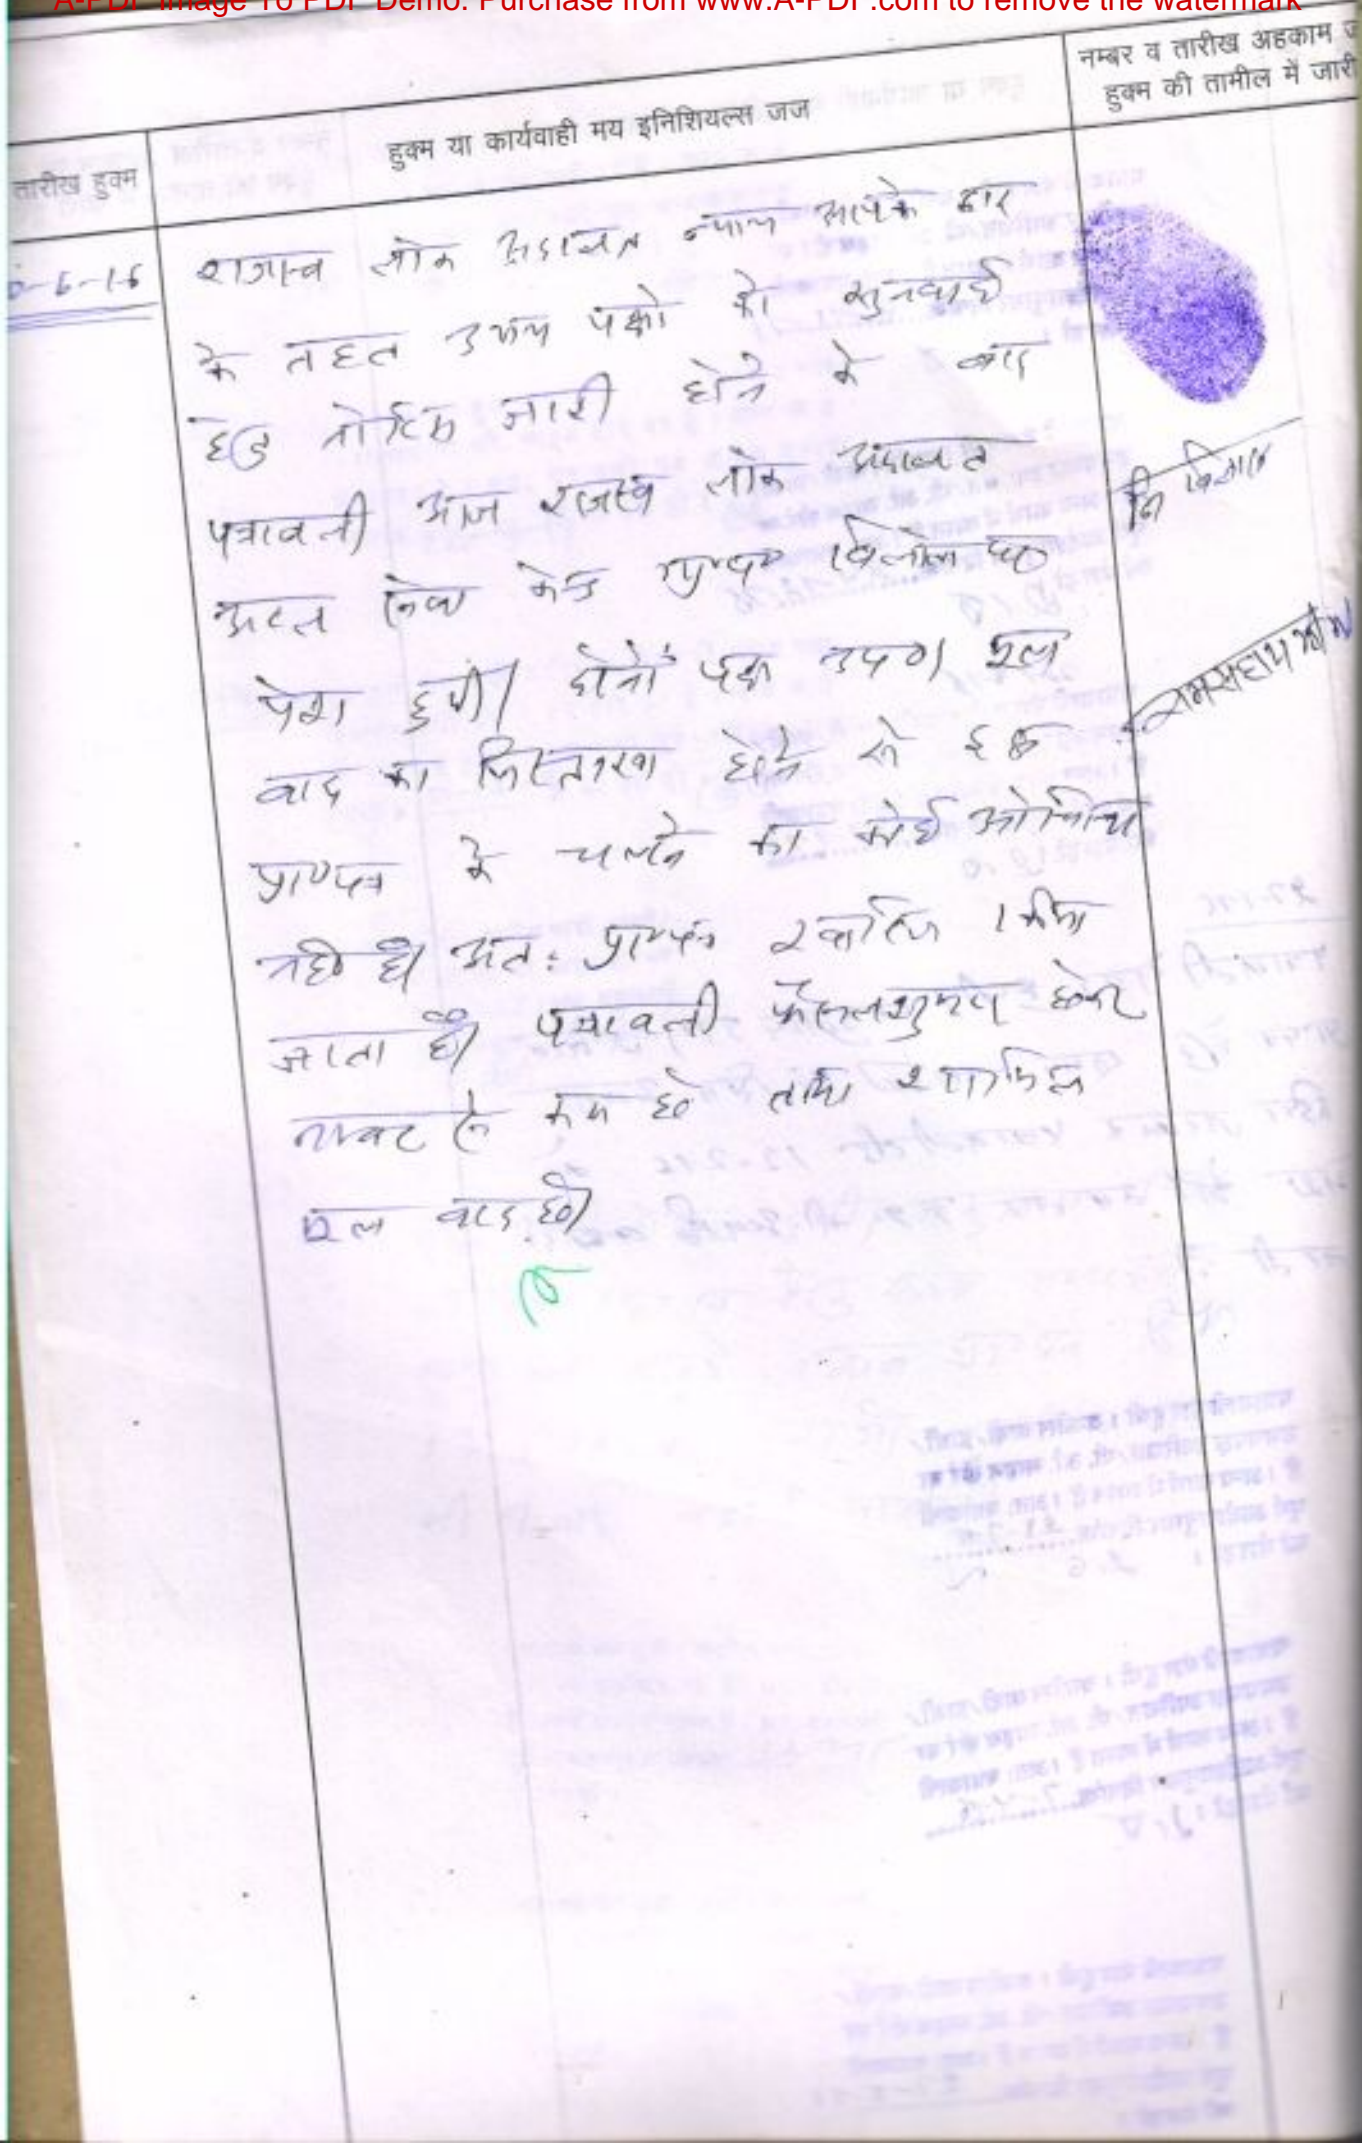 A-PDF Image To PDF Demo. Purchase from www.A-PDF.com to remove the watermark
तारीख हुक्म
हुक्म या कार्यवाही मय इनिशियल्स जज
नम्बर व तारीख अहकाम ज
हुक्म की तामील में जारी
-6-16
राजस्व लोक अदालत न्याय आपके द्वार
के तहत उभय पक्षो को सुनवाई
हेतु नोटिस जारी होने के बाद
पत्रावली आज राजस्व लोक अदालत
अटल सेवा केन्द्र
पेश हुयी। दोनों पक्ष उप० मूल
वाद का निस्तारण होने से इस
प्रा०पत्र के चलने का कोई औचित्य
नही है। अतः प्रा०पत्र खारिज किया
जाता है। पत्रावली फैसलशुमार होकर
नम्बर से कम हो तथा शामिल
मूल वाद हो।
नि
रामसहाय